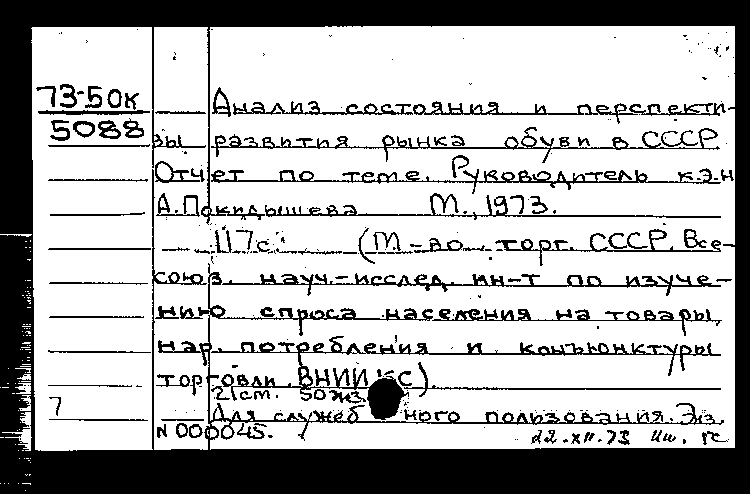 73-50к
5088
Анализ состояния и перспекти-
вы развития рынка обуви в СССР.
Отчет по теме. Руководитель к.э.н
А.Покидышева М., 1973.
117с. (М-во торг. СССР. Все-
союз. науч.-исслед. ин-т по изуче-
нию спроса населения на товары
нар. потребления и конъюнктуры
торговли ВНИИКС).
21см. 50экз
7 Для служебного пользования. Экз.
N 000045. 22.XII.73